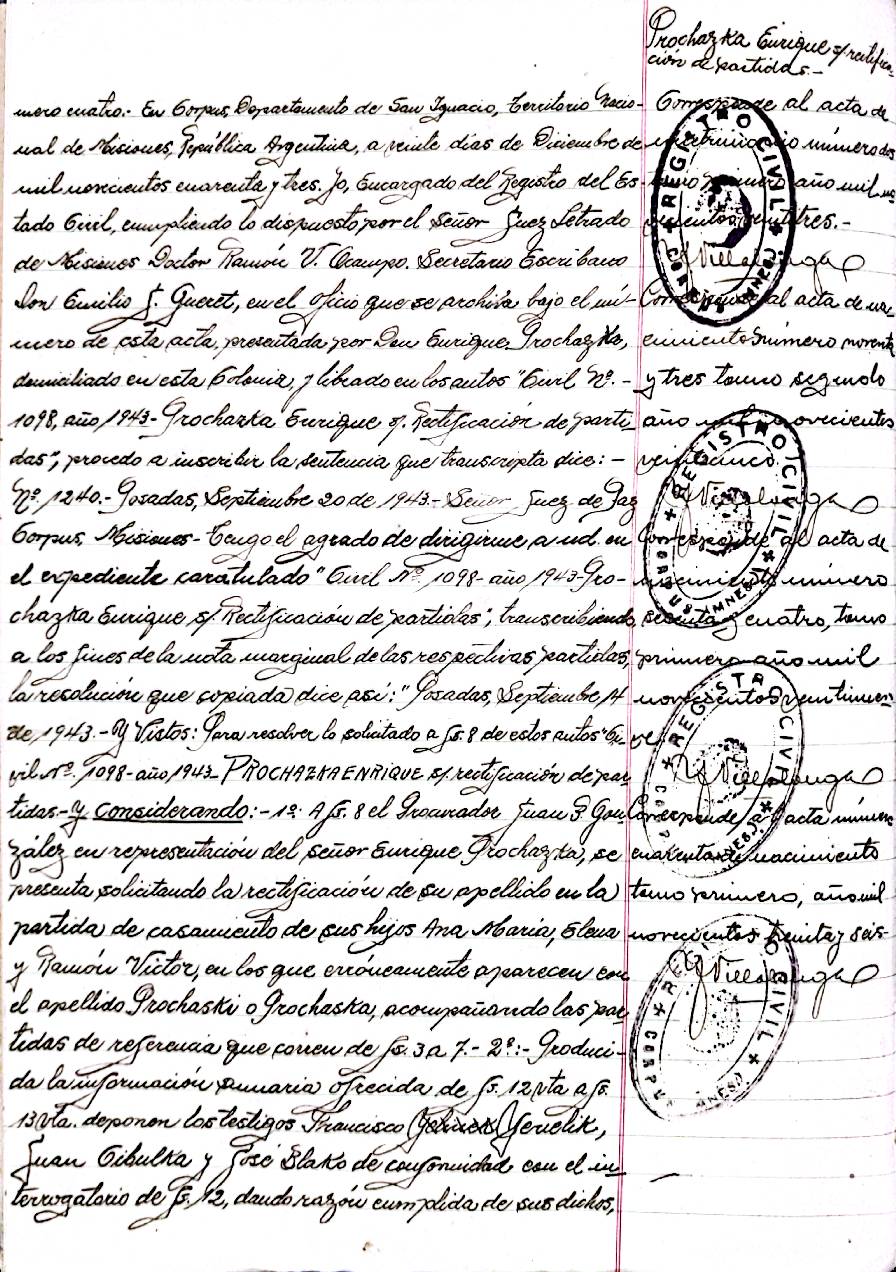 Prochazka Enrique s/ rectifica-
ción de partidas.-
mero cuatro.- En Corpus, Departamento de San Ignacio, Territorio Nacio-
nal de Misiones, República Argentina, a veinte días de Diciembre de
mil novecientos cuarenta y tres. Yo, Encargado del Registro del Es-
tado Civil, cumpliendo lo dispuesto por el señor Juez Letrado
de Misiones Doctor Ramón V. Ocampo. Secretario Escribano
Don Emilio J. Gueret, en el oficio que se archiva bajo el nú-
mero de esta acta, presentada por Don Enrique Prochazka,
domiciliado en esta Colonia, y librado en los autos "Civil Nº.-
1098, año 1943- Prochazka Enrique s/. Rectificación de parti-
das", procedo a inscribir la sentencia que transcripta dice:-
Nº. 1240.- Posadas, Septiembre 20 de 1943.- Señor Juez de Paz
Corpus, Misiones- Tengo el agrado de dirigirme a ud. en
el expediente caratulado "Civil Nº. 1098- año 1943- Pro-
chazka Enrique s/. Rectificación de partidas", transcribiendo,
a los fines de la nota marginal de las respectivas partidas,
la resolución que copiada dice así: "Posadas, Septiembre 14
de 1943.- Y Vistos: Para resolver lo solicitado a fs. 8 de estos autos "Ci-
vil Nº. 1098- año 1943- PROCHAZKA ENRIQUE s/. rectificación de par-
tidas.- Y Considerando:- 1º: A fs. 8 el Procurador Juan P. Gon-
zález en representación del señor Enrique Prochazka, se
presenta solicitando la rectificación de su apellido en la
partida de casamiento de sus hijos Ana María, Elena
y Ramón Victor, en los que erróneamente aparecen con
el apellido Prochaski o Prochaska, acompañando las par-
tidas de referencia que corren de fs. 3 a 7.- 2º:- Produci-
da la información sumaria ofrecida de fs. 12 vta a fs.
13 vta. deponen los testigos Francisco Yenelik,
Juan Cibulka y José Blako de conformidad con el in-
terrogatorio de fs. 12, dando razón cumplida de sus dichos,
Corresponde al acta de
matrimonio número dos
tomo primero año mil no-
vecientos veintitres.-
Villalonga
Corresponde al acta de na-
cimiento número noventa
y tres tomo segundo
año mil novecientos
veinticinco.
Villalonga
Corresponde al acta de
nacimiento número
sesenta y cuatro, tomo
primero año mil
novecientos veintinue-
ve
Villalonga
Corresponde al acta número
cuarenta de nacimiento
tomo primero, año mil
novecientos treinta y seis-
Villalonga
REGISTRO CIVIL
CORPUS
REGISTRO CIVIL
CORPUS
REGISTRO CIVIL
CORPUS
REGISTRO CIVIL
CORPUS